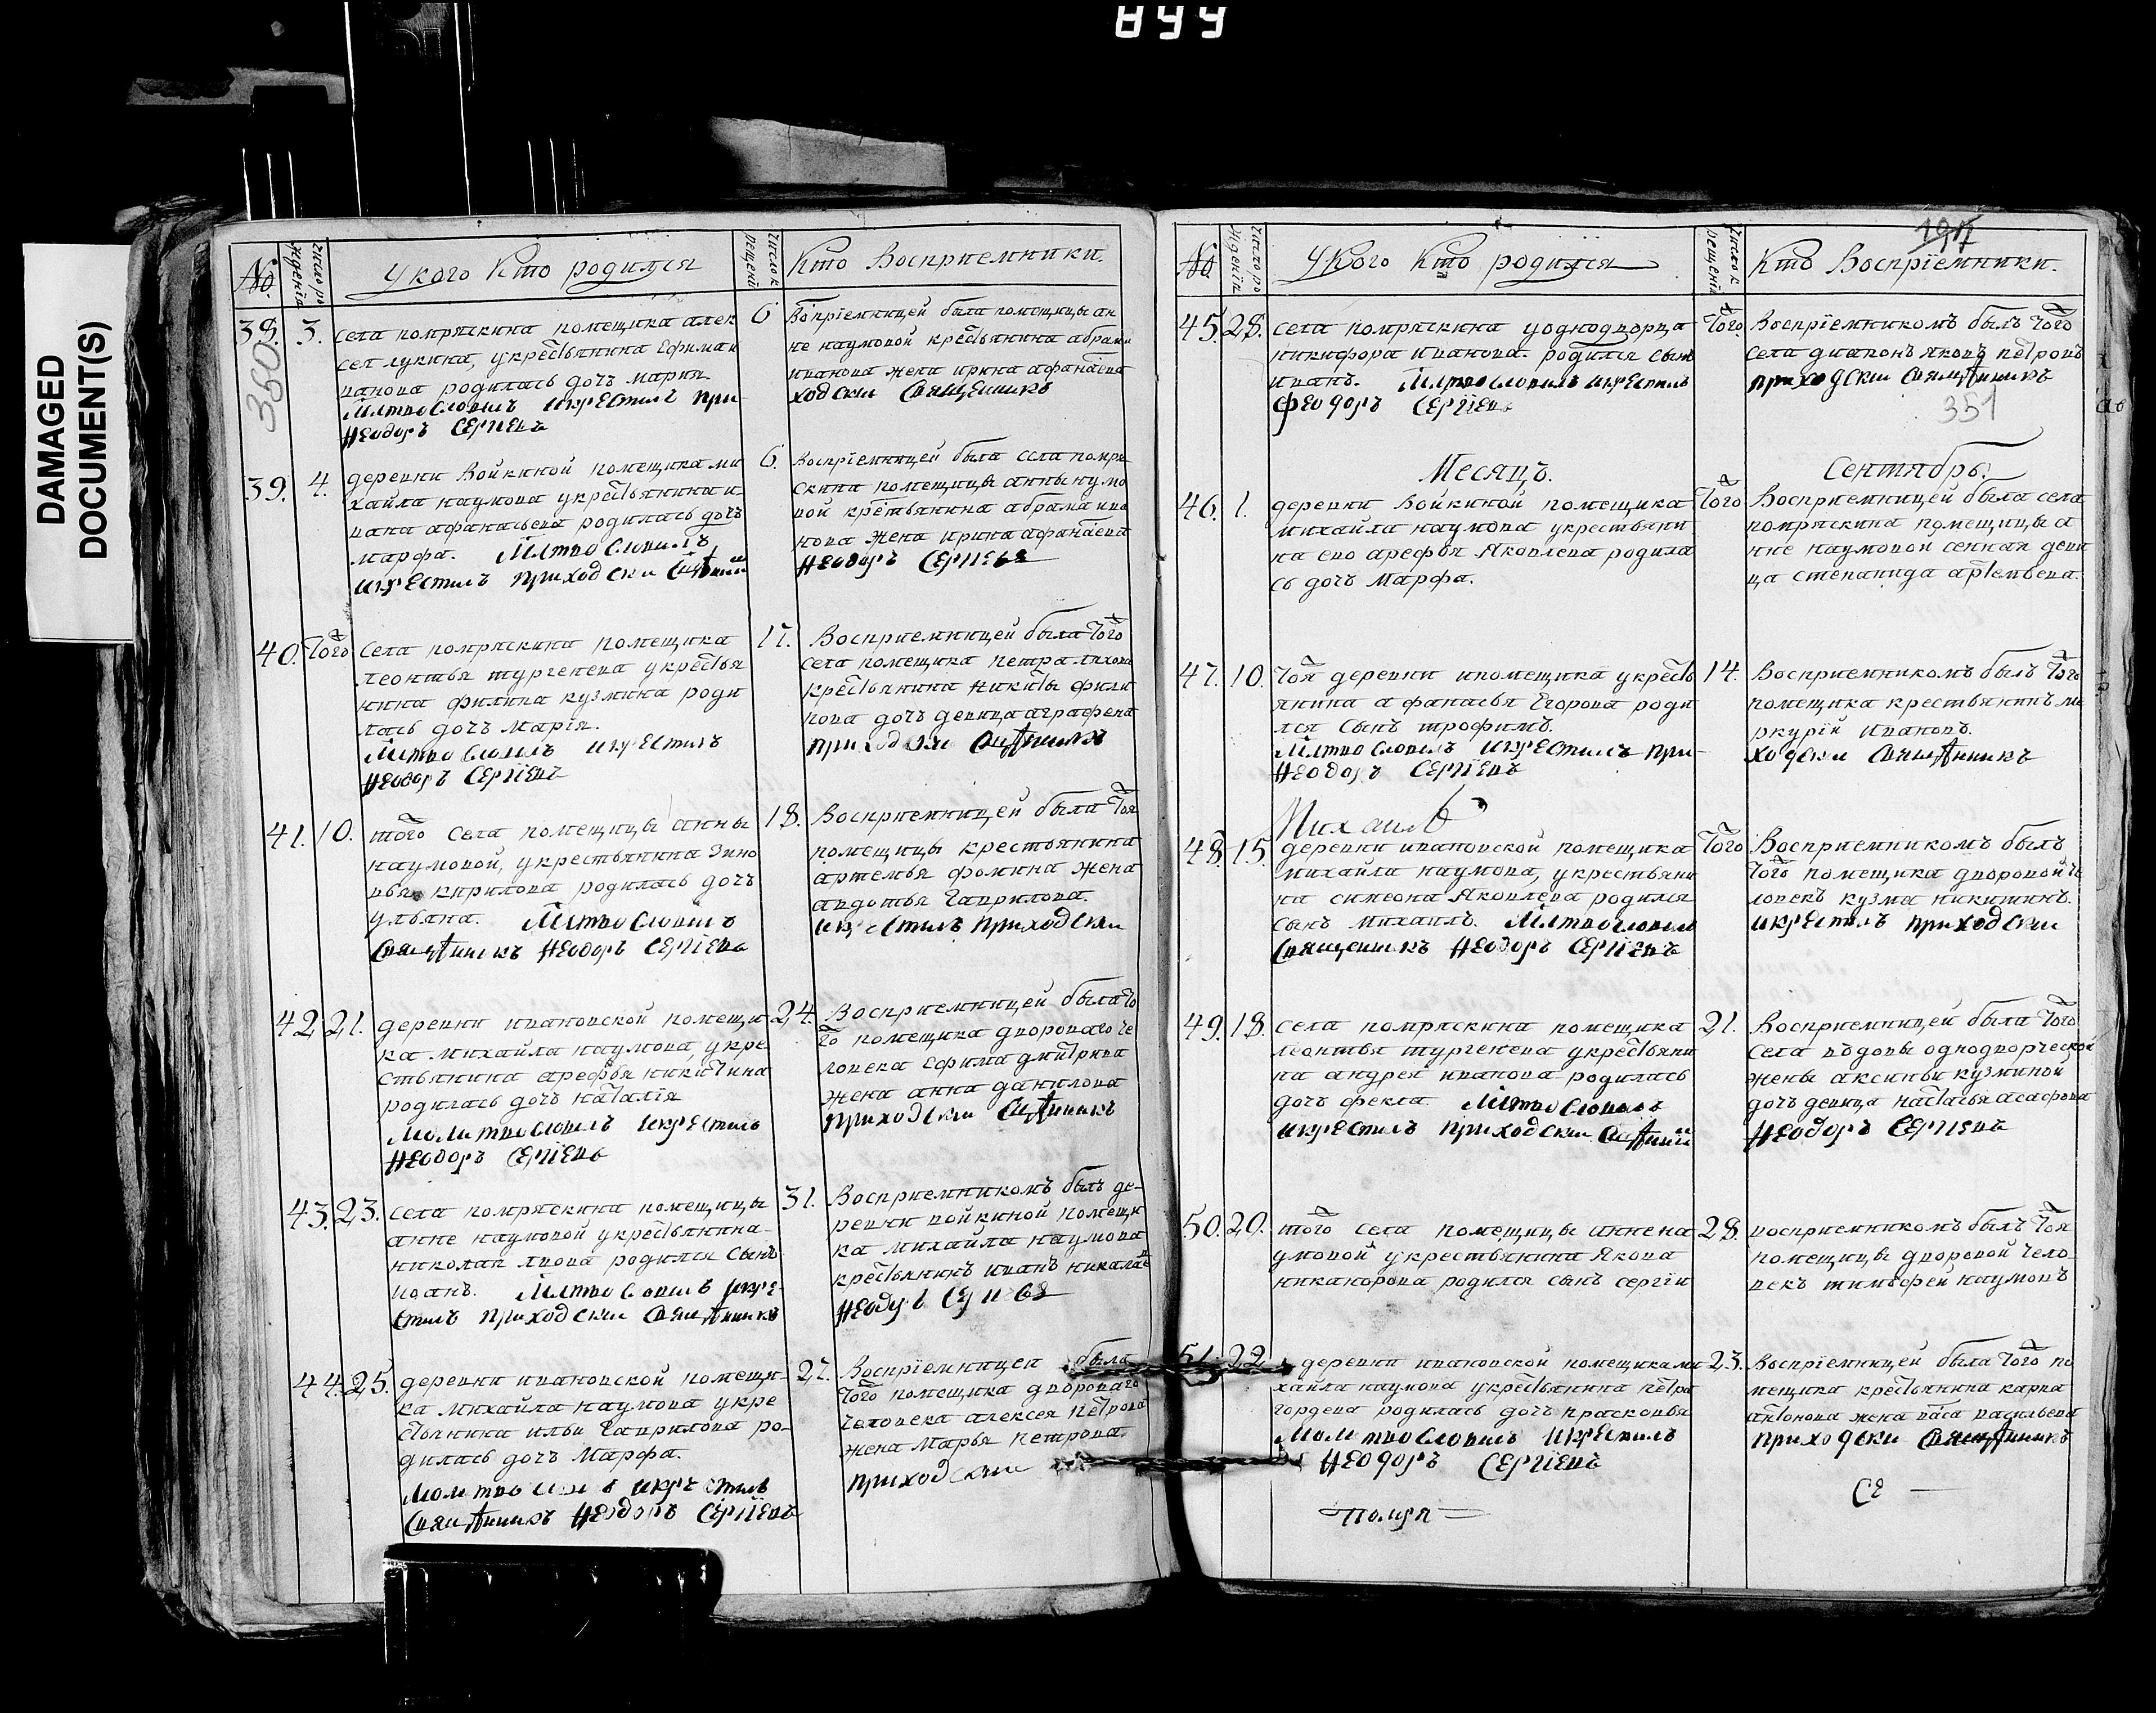 899
DAMAGED
DOCUMENT(S)
№.
Число рождения
У кого Кто родился
Число крещений
Кто Восприемники.
38.
3.
села помряскина помещика алек
сея лукина, укрестьянина Ефима и
ванова родилась дочь мария
Млтвословилъ икрестилъ при
Ѳеодоръ Сергіевъ
6
Воприемницей была помещицы ан
не наумовой крестьянина абрама
иванова жена ирина афанасева
ходски Священникъ
360
39.
4.
деревни Войкиной помещика ми
хайла наумова укрестьянина и
вана афанасьева родилась дочь
марфа. Млтвословилъ
икрестилъ приходски
6.
Восприемницей была села помря
скина помещицы анны наумо
вой крестьянина абрама ива
нова жена ирина афанасева
Ѳеодоръ Сергіевъ
40.
Того
села помряскина помещика
леонтья тургенева укрестья
нина филипа кузмина роди
лась дочь марія.
Млтвословилъ икрестилъ
Ѳеодоръ Сергіевъ
17.
Восприемницей была того
села помещика петра лихова
крестьянина никиты фили
пова дочь девица аграфена
приходски Свщнникъ
41.
10.
того села помещицы анны
наумовой, укрестьянина Зино
вья кирилова родилась дочь
ульяна. Млтвословилъ
Священникъ Ѳеодоръ Сергіевъ
18.
Восприемницей была тоя
помещицы крестьянина
артемья фомина жена
авдотья Гаврилова.
икрестилъ приходски
42
21.
деревни ивановской помещи
ка михайла наумова, укре
стьянина арефья никитина
родилась дочь наталія
Молитвословилъ икрестилъ
Ѳеодоръ Сергіевъ
24.
Восприемницей была то
го помещика дворового че
ловека Ефима дмитрива
жена анна данилова
приходски Свщнникъ
43.
23.
села помряскина помещицы
анне наумовой укрестьянина
николая львова родился сынъ
иоанъ. Млтвословилъ икре
стилъ приходски Свящнникъ
31.
Восприемникомъ былъ де-
ревни войкиной помещи
ка михайла наумова
крестьянинъ иванъ никалае
Ѳеодоръ Сергіевъ
44.
25.
деревни ивановской помещи-
ка михайла наумова укре
стьянина ильи Гаврилова ро-
дилась дочь марфа.
Молитвословилъ икрестилъ
Свящнникъ Ѳеодоръ Сергіевъ
27.
Восприемницей была
того помещика дворового
человека алексея петрова
жена марья петрова.
приходски
№
Число рождений
У кого Кто родился
Число крещений
Кто Восприемники.
197
45.
28.
села помряскина уоднодворца
никифора иванова. родился сынъ
иванъ. Млтвословилъ икрестилъ
Феодоръ Сергіевъ
Того.
Восприемникомъ былъ того
села диаконъ яковъ петровъ
приходски Свящнникъ
351
Месяцъ.
Сентябрь.
46.
1.
деревни Войкиной помещика
михайла наумова укрестьяни
на ево арефья Яковлева родила
сь дочь марфа.
Того
Восприемницей была села
помряскина помещицы а
нне наумовой сенная деви
ца степанида артемьева.
47.
10.
Тоя деревни ипомещика укресть
янина афанасья Егорова роди
лся сынъ трофимъ.
Млтвословилъ икрестилъ при
Ѳеодоръ Сергіевъ
14.
Восприемникомъ былъ того
помещика крестьянинъ ме
ркурій ивановъ.
ходски Свящнникъ
Михаилъ
48.
15.
деревни ивановской помещика
михайла наумова, укрестьяни
на симеона Яковлева родился
сынъ михаилъ. Млтвословилъ
Священникъ Ѳеодоръ Сергіевъ
Того
Восприемникомъ былъ
того помещика дворовой че
ловекъ кузма никитинъ.
икрестилъ приходски
49.
18.
села помряскина помещика
леонтья тургенева укрестьяни
на андрея иванова родилась
дочь фекла Млтвословилъ
икрестилъ приходски
21.
Восприемницей была того
села вдовы однодворческой
жены аксиньи кузминой
дочь девица настасья асафова
Ѳеодоръ Сергіевъ
50.
20.
того села помещицы аннена
умовой укрестьянина Якова
никанорова родился сынъ сергіи
28.
восприемникомъ былъ тоя
помещицы дворовой чело
векъ тимофей наумовъ
51.
22.
деревни ивановской помещика ми
хайла наумова укрестьянина петра
гордева родилась дочь прасковья
Молитвословилъ икрестилъ
Ѳеодоръ Сергіевъ
23.
Восприемницей была того по
мещика крестьянина карпа
антонова жена васа васильева
приходски Свящнникъ